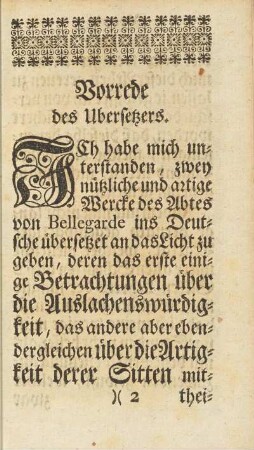 Vorrede
des Ubersetzers.
ICh habe mich un-
terstanden, zwey
nützliche und artige
Wercke des Abtes
von Bellegarde ins Deut-
sche übersetzet an das Licht zu
geben, deren das erste eini-
ge Betrachtungen über
die Auslachenswürdig-
keit, das andere aber eben-
dergleichen über die Artig-
keit derer Sitten mit-
)( 2 thei-